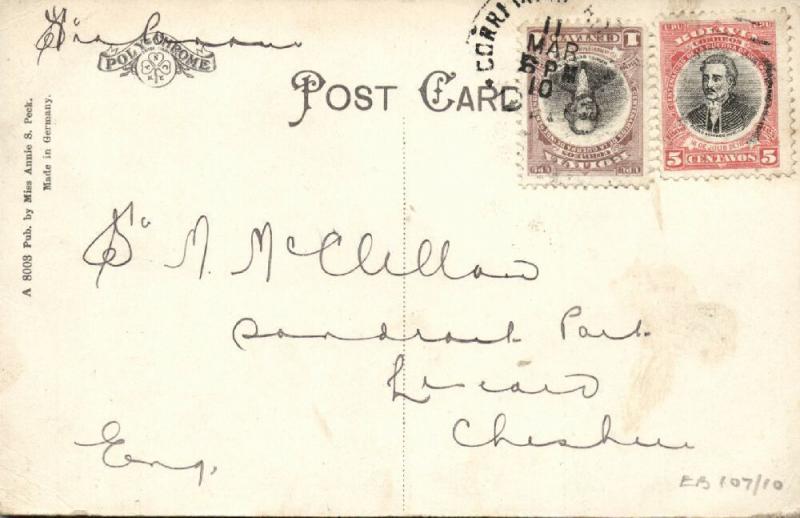 Via Panama
POLYCHROME
POST CARD
CORRE
11
MAR
5 PM
10
1 CENTAVO 1
BOLIVIA
UPU BOLIVIA UPU
CORREOS
5 CENTAVOS 5
A 8003 Pub. by Miss Annie S. Peck.
Made in Germany.
Sr M. McClellan
Sandrock Park
Liscard
Cheshire
Eng.
EB 107/10